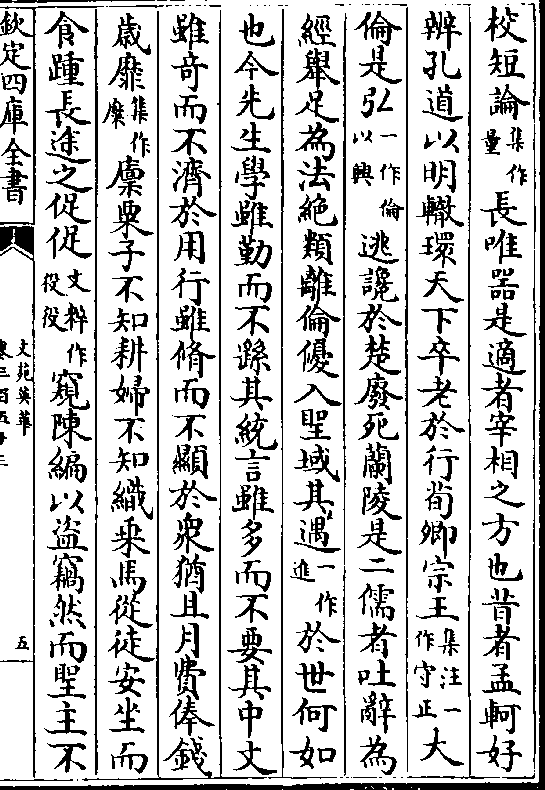 校短論集作量長唯器是適者宰相之方也昔者孟軻好
辨孔道以明轍環天下卒老於行荀卿宗王集注一作守正大
倫是弘一作倫以興逃讒於楚廢死蘭陵是二儒者吐辭為
經舉足為法絶類離倫優入聖域其遇一作進於世何如
也今先生學雖勤而不繇其統言雖多而不要其中文
雖奇而不濟於用行雖脩而不顯於衆猶且月費俸錢
歳靡集作糜廪粟子不知耕婦不知織乗馬從徒安坐而
食踵長途之促促文粹作役役窺陳編以盗竊然而聖主不
欽定四庫全書
文苑英華
卷三百五十三
五